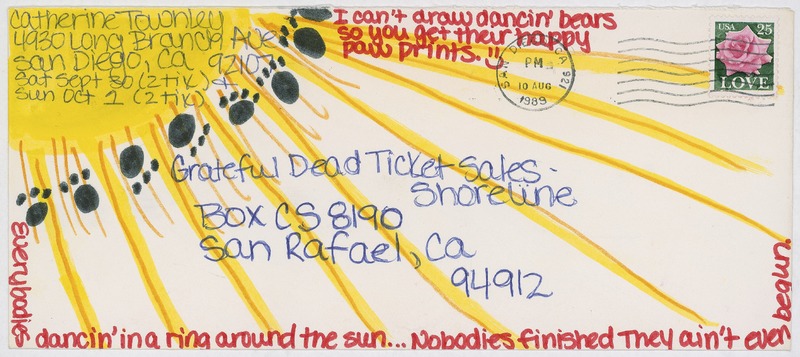 Catherine Townley
4930 Long Branch Ave
San Diego, Ca 92107
Sat Sept 30 (2 tix) &
Sun Oct 1 (2 tix)
I can't draw dancin' bears
so you get their happy
paw prints.
SAN DIEGO, CA 921
PM
10 AUG
1989
USA 25
LOVE
Grateful Dead Ticket Sales -
Shoreline
BOX CS 8190
San Rafael, Ca
94912
Everybodies dancin' in a ring around the sun... Nobodies finished They ain't even begun.